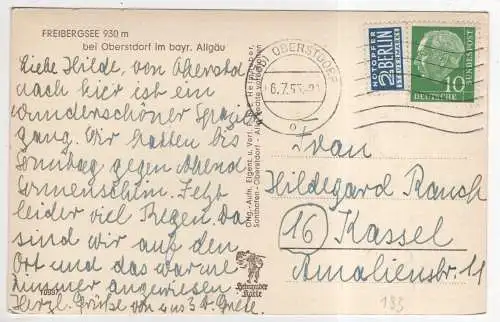 FREIBERGSEE 930 m
bei Oberstdorf im bayr. Allgäu
Liebe Hilde, von Oberstd
nach hier ist ein
wunderschöner Spazier
gang. Wir hatten bis
Sonntag gegen Abend
Sonnenschein. Jetzt
leider viel Regen. Da
sind wir auf den
Ort und das warme
Zimmer angewiesen
Herzl. Grüße von u. Grete.
Orig.-Aufn. Eigent. u. Verl. Heimhuber,
Sonthofen-Oberstdorf - Allgäu
Heimhuber
Karte
OBERSTDORF
6.7.55
NOTOPFER
2 BERLIN
STEUERMARKE
10
DEUTSCHE BUNDESPOST
Frau
Hildegard Rausch
16 Kassel
Amalienstr. 11
193